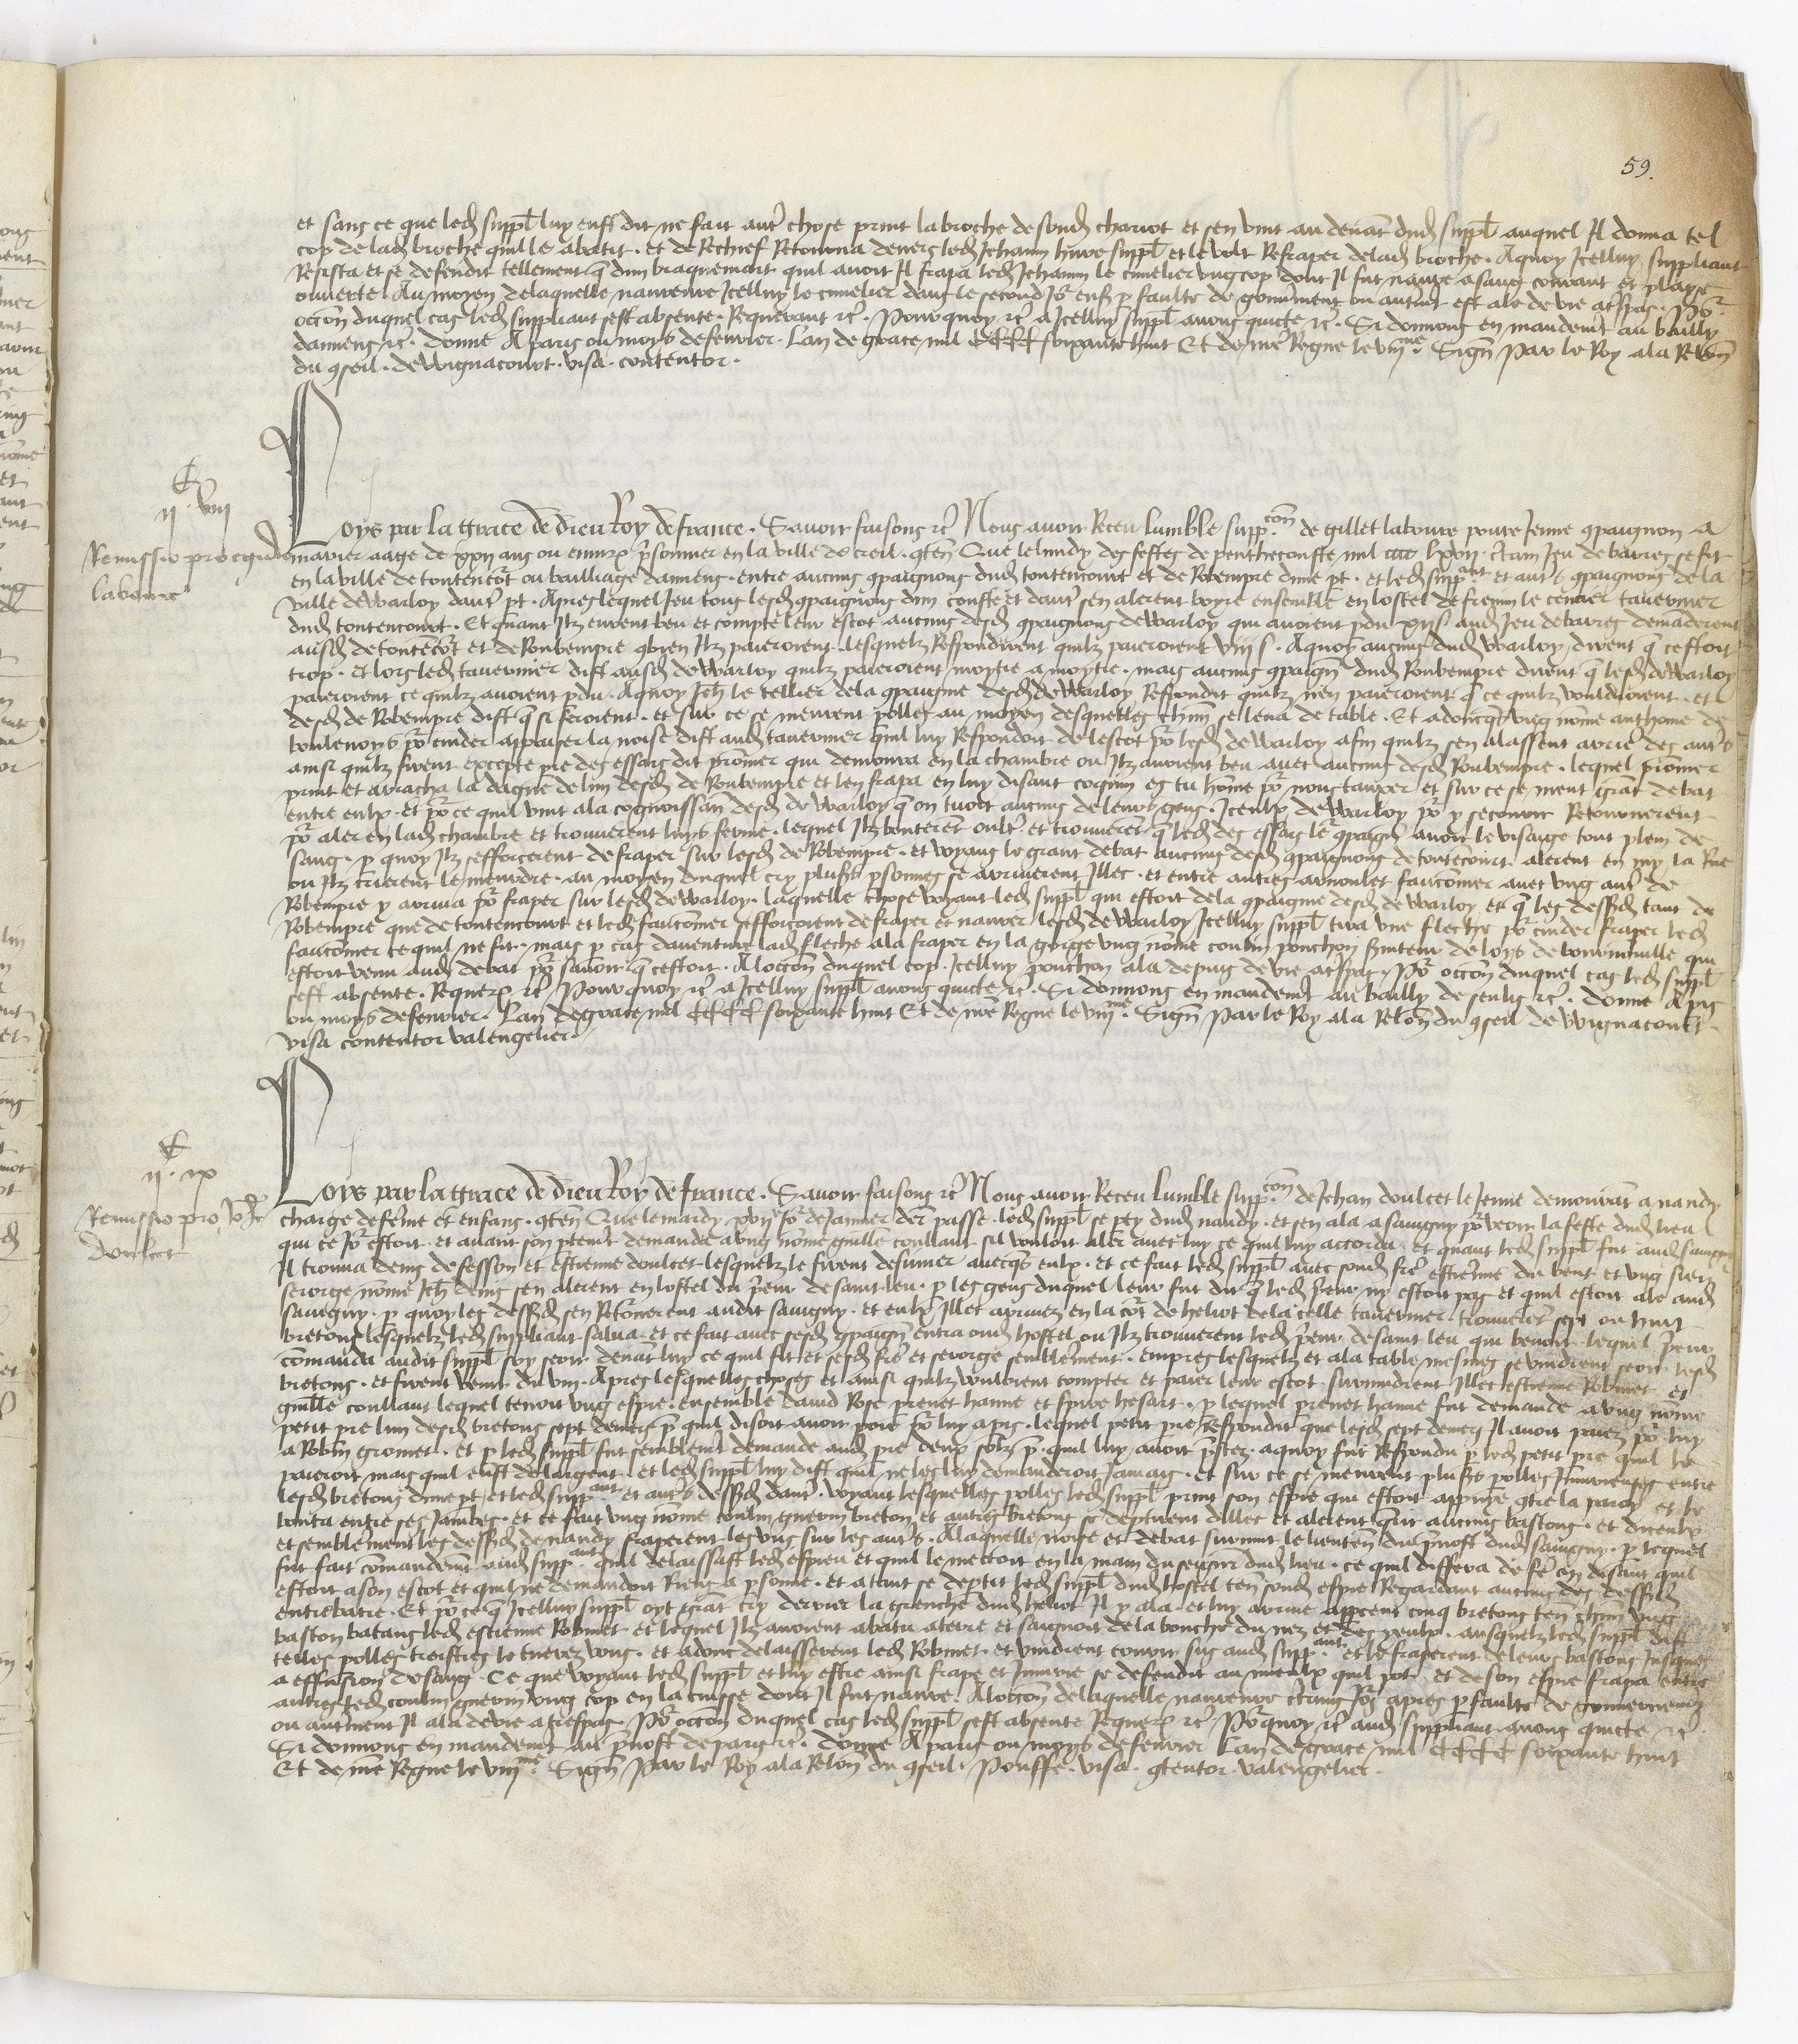 59.
et sans ce que led suppl luy eust dit ne fait autre chose print la broche de sond chariot et sen vint au devat dud suppl auquel Il donna tel
cop de lad broche quil le abatit . et de Rechief Retourna devers led Jehann huve suppl et le volt Refraper de lad broche . Aquoy Icelluy suppliant
Resista et se defendit tellement q dun braquemart quil avoit Il frapa led Jehann le cuvelier ung cop dont Il fut navre a sang courant et playe
ouverte . Au moyen de laquelle navreure Icelluy le cuvelier dans le second Jor ens p faulte de gouvnment ou autmt est ale de vie a tspas . Por
occon duquel cas led suppliant sest absente . Requerant etc . Pourquoy etc a Icelluy suppl avons quicte etc . Si donnons en mandemt au bailly
damiens etc . donne A paris ou moys de fevrier . Lan de grace mil cccc soixante huit Et de nre Regne le viijme . Sign Par le Roy a la Relon
du gseil . de Wignacourt . visa . contentor .
ij . viij
Remissio pro egidio
laboure
Loys par la grace de dieu Roy de france . Savoir faisons etc Nous avoir Receu lumble suppcon de gillet laboure povre Jeune gpaignon a
marier aage de xxij ans ou environ prisonnier en la ville de creil . gten Que le lundy des festes de penthecouste mil cccc lxvij . A ung Jeu de barres se fit
en la ville de toutencort ou bailliage damiens . entre aucuns gpaignons dud toutencourt et de Robempre dune pt . et led suppant et autes gpaignons de la
ville de Warloy dautre pt . Apres lequel Jeu tous lesd gpaignons dun couste et dautre sen alerent boyre ensemble en lostel de fremin le censier tavernier
dud toutencourt . Et quant Ilz eurent beu et compte leur escot aucuns desd gpaignons de Warloy qui avoient pdu xij s aud Jeu de barres demaderent
ausd de toutencort et de Roubempre gbien Ilz paieroient . lesquelz Respondirent quilz paieroient viij s . Aquoy aucuns dud Warloy dirent q cestoit
trop . Et lors led tavernier dist ausd de Warloy quilz paieroient moytie a moytie . mais aucuns gpaign dud Roubempre dirent q lesd de Warloy
paieroient ce quilz avoient pdu . Aquoy Jeh le tellier de la gpaignie desd de Warloy Respondit quilz nen paieroient q ce quilz vouldroient . et
desd de Robempre dist q si feroient . et sur ce se meurent polles au moyen desquelles chun se leva de table . Et adoncques ung nome anthoine de
boulenoys por cuider appaiser la noise dist aud tavernier quil luy Respondoit de lescot por lesd de Warloy afin quilz sen alassent arrie des autes
ainsi quilz firent excepte pre des essars dit promer qui demoura en la chambre ou Ilz avoient beu avec aucuns desd Roubempre . lequel promer
print et arracha la dague de lun desd de Roubempre et len frapa en luy disant coquin es tu home por nous tauxer et sur ce se meut grat debat
entre eulx . et por ce quil vint a la cognoissan desd de Warloy q on tuoit aucuns de leurs gens . Iceulx de Warloy por y secourir Retournerent
por aler en lad chambre et trouverent luys ferme . lequel Ilz bouteret oultre et trouveret q led des essars le gpaign avoit le visaige tout plein de
sang . p quoy Ilz sefforcerent de fraper sur lesd de Robempre . et voyans le grant debat aucuns desd gpaignons de toutecourt alerent en my la Rue
ou Ilz crierent le meurdre . au moyen duquel cry plusrs psonnes se arriverent Illec . et entre autres arnoulet fauconnier avec ung autre de
Robempre y arriva por fraper sur lesd de Warloy . laquelle chose voyant led suppl qui estoit de la gpaignie desd de Warloy et q les dessusd tant de
Robempre que de toutencourt et led fauconier sefforcoient de fraper et navrer lesd de Warloy Icelluy suppl tira une fleche por cuider fraper led
fauconer ce quil ne fit . mais p cas daventure lad fleche ala fraper en la gorge ung nome coulin ponchon serviteur de loys de qui
estoit venu aud debat por savoir q cestoit . A loccon duquel cop Icelluy ponchon ala depuis de vie a tspas . Por occon duquel cas led suppl
sest absente . Requerant etc Pourquoy etc a Icelluy suppl avons quicte etc . Si donnons en mandemt au bailly de senlis etc . donne A pis
ou moys de fevrier . Lan de grace mil cccc soixante huit Et de nre Regne le viijme . Sign Par le Roy a la Relon du gseil de Wignacourt .
visa contentor valengelier
ij . ix
Remissio pro Johe
doulcet
Loys par la grace de dieu Roy de france . Savoir faisons etc Nous avoir Receu lumble suppcon de Jehan doulcet le Jeune demourat a nandy
charge de feme et enfans . gten Que le mardy xvije Jor de Janvier der passe . led suppl se pty dud nandy . et sen ala a savigny por veoir la feste dud lieu
qui ce Jor estoit . et avant son ptemt demanda a ung nome guille coullaut sil vouloit aler avec luy ce quil luy accorda . et quant led suppl fut aud savigny
Il trouva denis de fesson et estienne doulcet lesquelz le firent desiuner avecqs eulx . et ce fait led suppl avec sond fre estienne du bent et ung sien
serorge nome Jeh denis sen alerent en lostel du prieur de saint leu . p les gens duquel leur fut dit q led prieur ny estoit pas et quil estoit ale aud
savigny . p quoy les dessusd sen Retornerent audit savigny . et eulx Illec arrivez en la cort de heliot de la celle tavernier trouveret sept ou huit
bretons lesquelz led suppliant salua . et ce fait avec sesd gpaign entra oud hostel ou Ilz trouverent led prieur de saint leu qui bevoit . lequel prieur
comanda audit suppl soy seoir devat luy ce quil fit et sesd fre et serorge semblement . empres lesquelz et a la table mesmes se vindrent seoir lesd
bretons . et firent venir du vin . Apres lesquelles choses et ainsi quilz vouloient compter et paier leur escot . survindrent Illec estienne Robinet et
guille coullaut lequel tenoit ung espie . ensemble david Rose prenet hanne et hesart . p lequel prenet hanne fut demande a ung nome
petit pre lun desd bretons sept deniers p quil disoit avoir paie por luy a pis . lequel petit pre Respondit que lesd sept deniers Il avoit paiez por luy
a Robin gromet . et p led suppl fut semblemt demande aud pre deux solz p . quil luy avoit prestez . aquoy fut Respondu p led petit pre quil le
paieroit mais quil eust de largent . et led suppl luy dist quil ne les luy demanderoit Jamais . et sur ce se meurent plusrs polles Iniurieuses entre
lesd bretons dune pt et led suppant et autes dessusd dautre . voyant lesquelles polles led suppl print son espie qui estoit appuye gtre la paroy et le
bouta entre ses Jambes . et ce fait ung nome coulin guerin breton et autres bretons se deptirent dillec et alerent querir aucuns bastons . et diceulx
et semblement les dessusd de nandy fraperent les ungs sur les autes . A laquelle noise et debat survint le lieuten du prevost dud savigny . p lequel
fut fait comandemt aud suppant quil delaissast led espieu et quil le mectoit en la main du seigneur dud lieu . ce quil differa de fe en disant quil
estoit a son escot et quil ne demandoit Riens a psonne . et a tant se deptit led suppl dud hostel ten sond espie Regardant aucuns des dessusd
entrebatre . Et por ce q Icelluy suppl oyt grat cry derrier la grenche dud heliot Il y ala . et luy arrive apperceut cinq bretons ten chun ung
baston batans led estienne Robinet et lequel Ilz avoient abatu a terre et saignoit de la bouche du nez et des yeulx . ausquelz led suppl dist
telles polles traistres le tuerez vous . et adonc delaisserent led Robinet . et vindrent courir sus aud suppant et le fraperent de leurs bastons Jusques
a effusion de sang . Ce que voyant led suppl et luy estre ainsi frape et Iniurie se defendit au mieulx quil pot . et de son espie frapa entre
autres led coulin guerin ung cop en la cuisse dont Il fut navre . A loccon de laquelle navreure certains Jors apres p faulte de gouvernemt
ou autment Il ala de vie a trespas . Por occon duquel cas led suppl sest absente Requerant etc Porquoy etc aud suppliant avons quicte etc .
Si donnons en mandemt au prevost de paris etc . donne A paris ou moys de fevrier Lan de grace mil cccc soixante huit
Et de nre Regne le viijme . Sign Par le Roy a la Relon du gseil . Pouffe . visa . gtentor . valengelier .